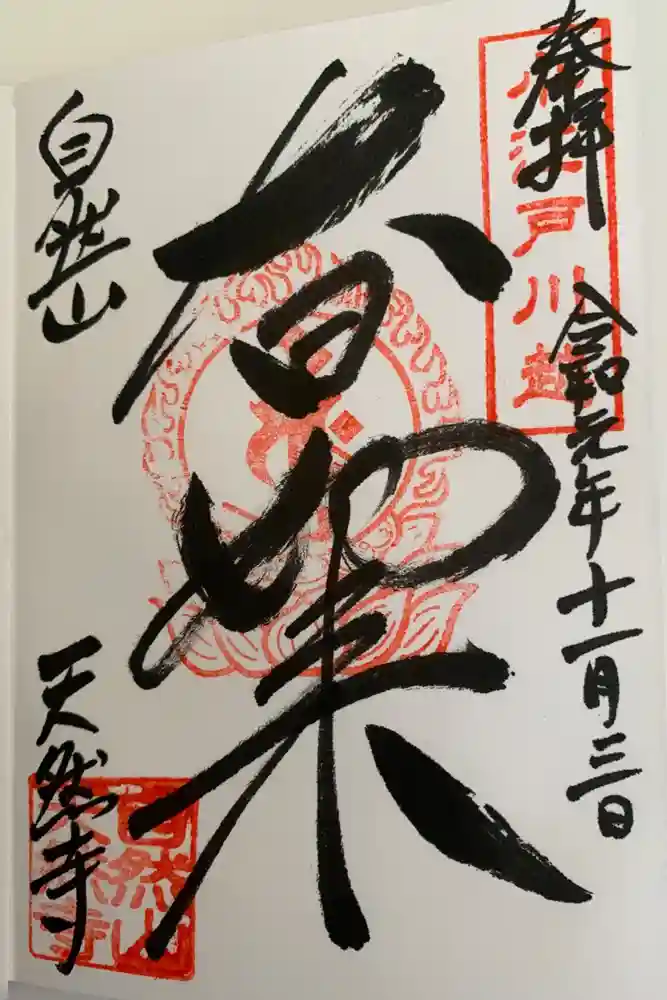 奉拝
令和元年十一月三日
小江戸川越
大日如来
自然山
天然寺
自然山
天然寺